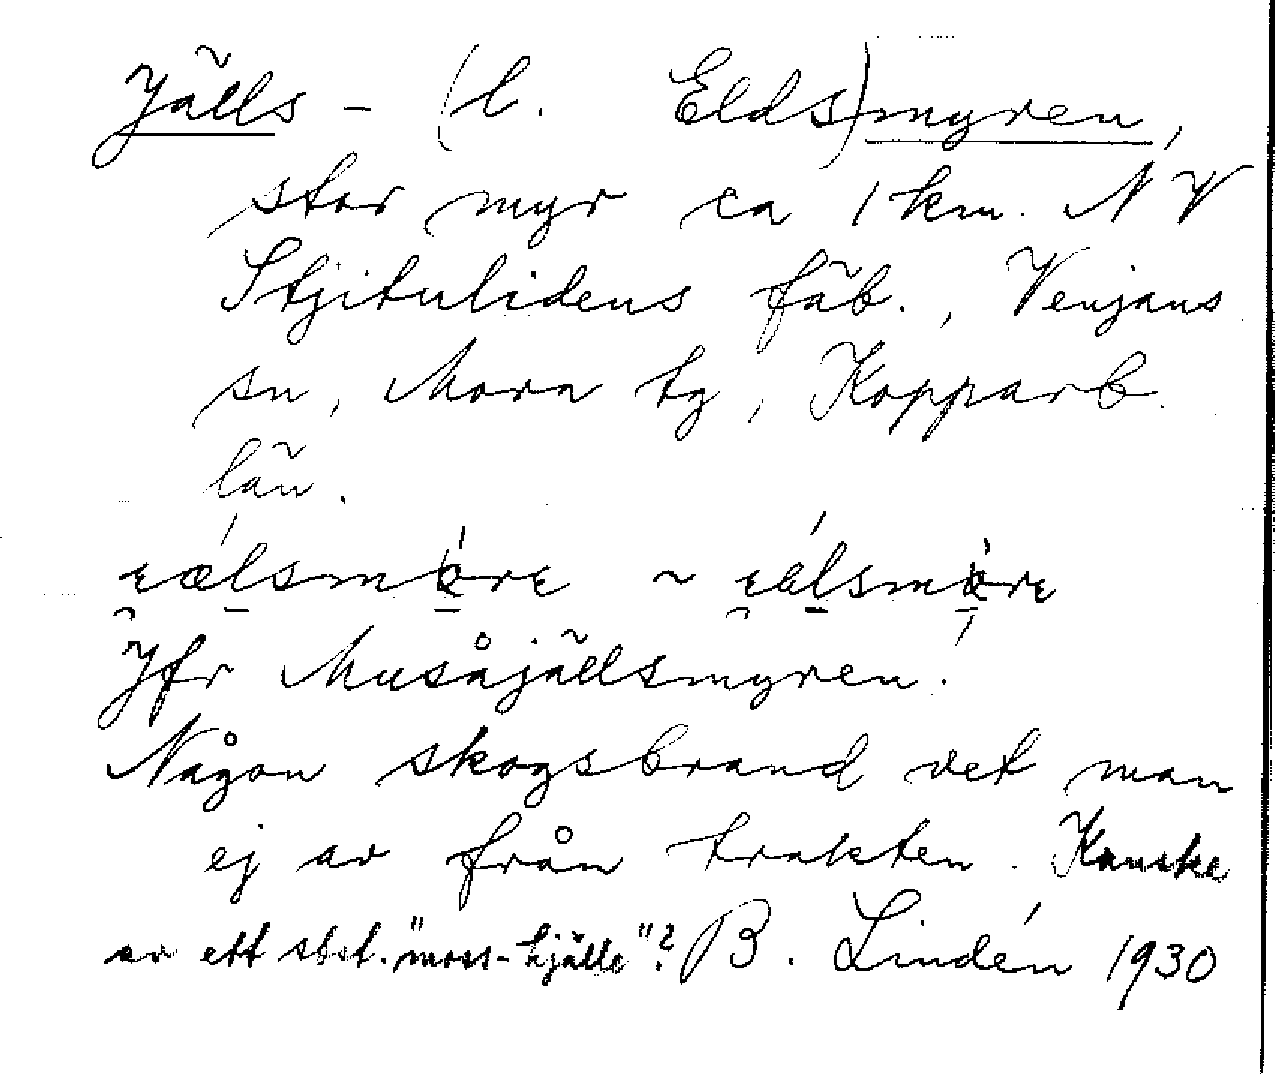 Jälls - (l. Elds)myren,
stor myr ca 1 km. NV
Stjitulidens fäb., Venjans
sn, Mora tg, Kopparb.
län.
Jfr Musåjällsmyren.
Någon skogsbrand vet man
ej av från trakten. Kanske
av ett sbst. "moss-hjälle"? B. Lindén 1930